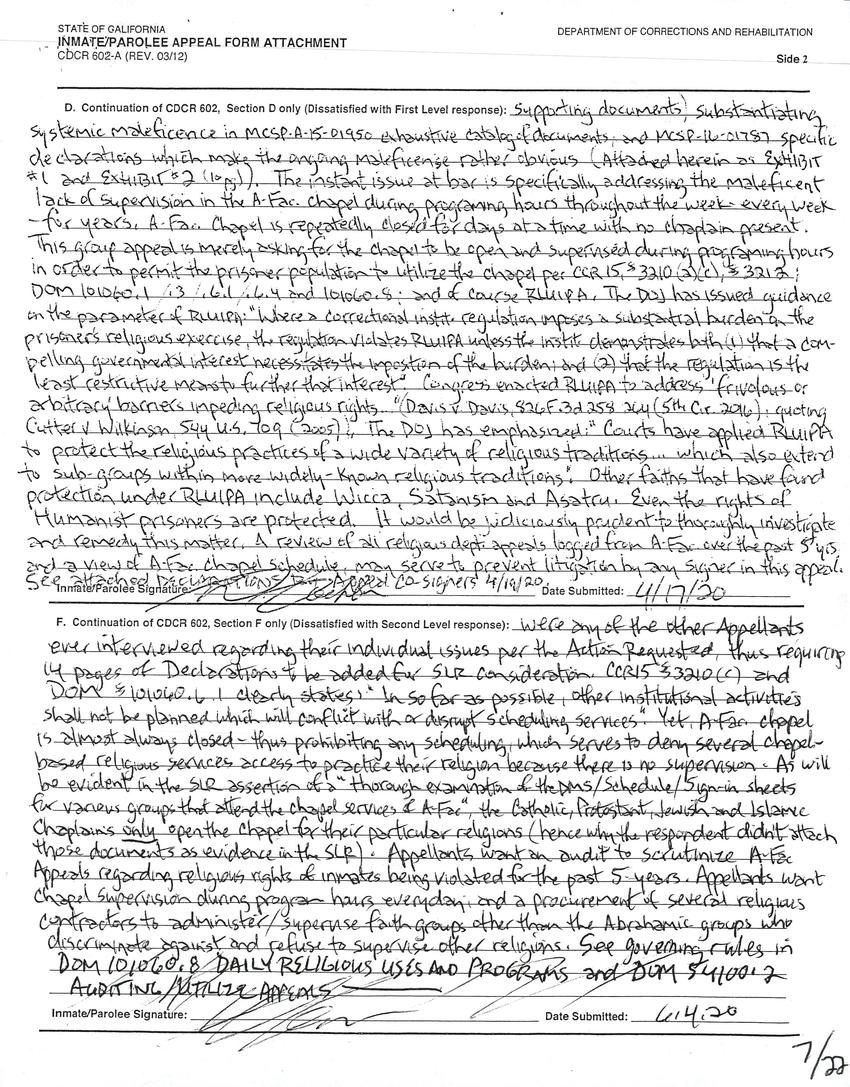 STATE OF CALIFORNIA
INMATE/PAROLEE APPEAL FORM ATTACHMENT
CDCR 602-A (REV. 03/12)
DEPARTMENT OF CORRECTIONS AND REHABILITATION
Side 2
D. Continuation of CDCR 602, Section D only (Dissatisfied with First Level response): supporting documents) substantiating
systemic maleficence in MCSP-A-15-01950 exhaustive catalog of documents, and MCSP-16-01787 specific
declarations which make the ongoing maleficense rather obvious (Attached herein as EXHIBIT
#1 and EXHIBIT #2 (10 pg)). The instant issue at bar is specifically addressing the maleficent
lack of supervision in the A-Fac. Chapel during programing hours throughout the week - every week
- for years. A-Fac. Chapel is repeatedly closed for days at a time with no chaplain present.
This group appeal is merely asking for the chapel to be open and supervised during programing hours
in order to permit the prisoner population to utilize the chapel per CCR 15, § 3210 (a)(c), § 3212;
DOM 101060.1 /.3 /.6.1 /.6.4 and 101060.8; and of course RLUIPA. The DOJ has issued guidance
on the parameter of RLUIPA: "Where a correctional instit. regulation imposes a substantial burden on the
prisoner's religious exercise, the regulation violates RLUIPA unless the instit demonstrates both (1) that a com-
pelling governmental interest necessitates the impostion of the burden; and (2) that the regulation is the
least restrictive means to further that interest". Congress enacted RLUIPA to address "frivolous or
arbitrary' barriers impeding religious rights.." (Davis v. Davis, 826 F.3d 258 264 (5th Cir. 2016); quoting
Cutter v Wilkinson, 544 U.S. 709 (2005)); The DOJ has emphasized: "Courts have applied RLUIPA
to protect the religious practices of a wide variety of religious traditions... which also extend
to sub-groups within more widely-known religious traditions". Other faiths that have found
protection under RLUIPA include Wicca, Satanism and Asatru. Even the rights of
Humanist prisoners are protected. It would be judiciously prudent to thoroughly investigate
and remedy this matter. A review of all religious dept. appeals logged from A-Fac over the past 5 yrs,
and a view of A-Fac. Chapel schedule, may serve to prevent litigation by any signer in this appeal.
See attached Declarations By Appeal Co-signers 4/19/20.
Inmate/Parolee Signature: Date Submitted: 4/17/20
F. Continuation of CDCR 602, Section F only (Dissatisfied with Second Level response): were any of the other Appellants
ever interviewed regarding their individual issues per the Action Requested, thus requiring
14 pages of Declarations to be added for SLR consideration. CCR15 § 3210(c) and
DOM § 101060.6.1 clearly states: "In so far as possible, other institutional activities
shall not be planned which will conflict with or disrupt scheduling services". Yet, A-Fac chapel
is almost always closed - thus prohibiting any scheduling, which serves to deny several chapel-
based religious services access to practice their religion because there is no supervision. As will
be evident in the SLR assertion of a "thorough examination of the DMS/Schedule/Sign-in sheets
for various groups that attend the chapel services of A-Fac", the Catholic, Protestant, Jewish and Islamic
Chaplains only open the Chapel for their particular religions (hence why the respondent didn't attach
those documents as evidence in the SLR). Appellants want an audit to scrutinize A-Fac
Appeals regarding religious rights of inmates being violated for the past 5 years. Appellants want
chapel supervision during program hours everyday; and a procurement of several religious
contractors to administer/supervise faith groups other than the Abrahamic groups who
discriminate against and refuse to supervise other religions. See governing rules in
DOM 101060.8 DAILY RELIGIOUS USES AND PROGRAMS and DOM 54100.2
AUDITING/UTILIZE APPEALS
Inmate/Parolee Signature: Date Submitted: 6.4.20
7/22